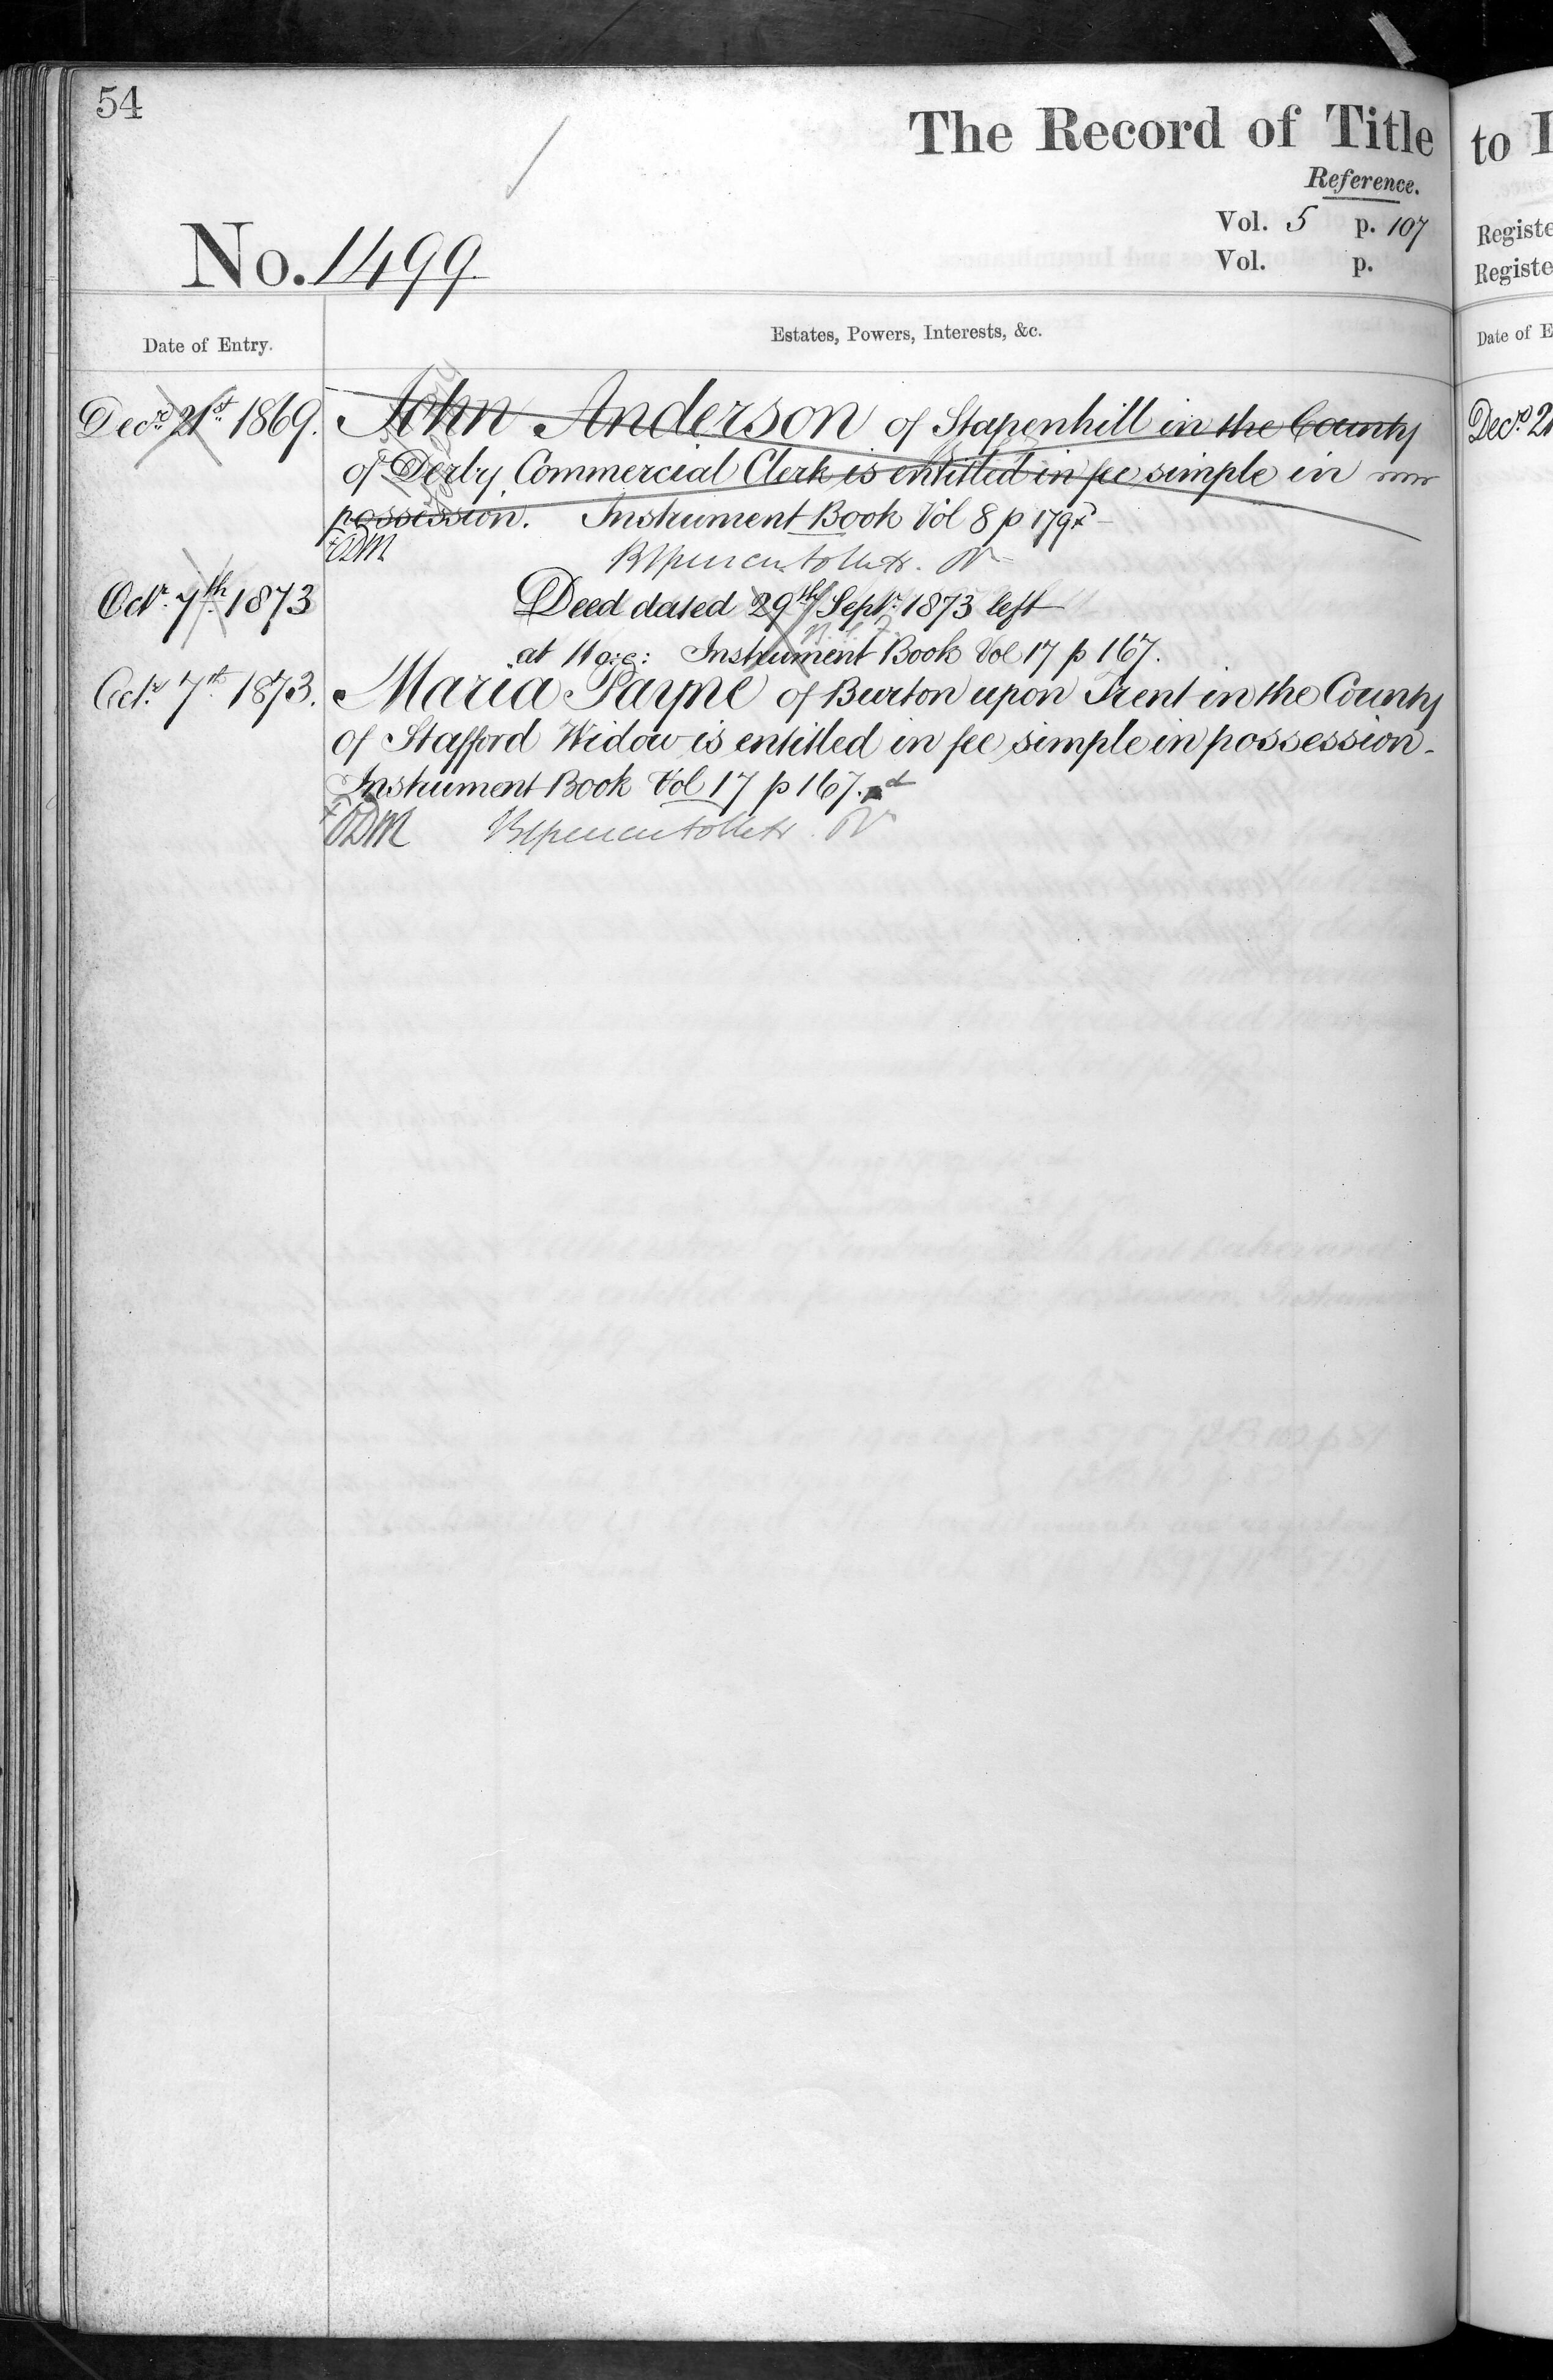 54
The Record of Title
Reference.
Vol. 5 p. 107
No. 1499
Vol. p.
Date of Entry.
Estates, Powers, Interests, &c.
Decr. 21st 1869. John Anderson of Stapenhill in the County
of Derby Commercial Clerk is entitled in fee simple in
possession. Instrument Book Vol 8 p 179
Octr. 7th 1873 Deed dated 29th Septr. 1873 left
at 11 Instrument Book Vol 17 p 167.
Octr. 7th 1873. Maria Payne of Burton upon Trent in the County
of Stafford Widow is entitled in fee simple in possession.
Instrument Book Vol 17 p 167.
to
Registe
Registe
Date of E
Decr. 21